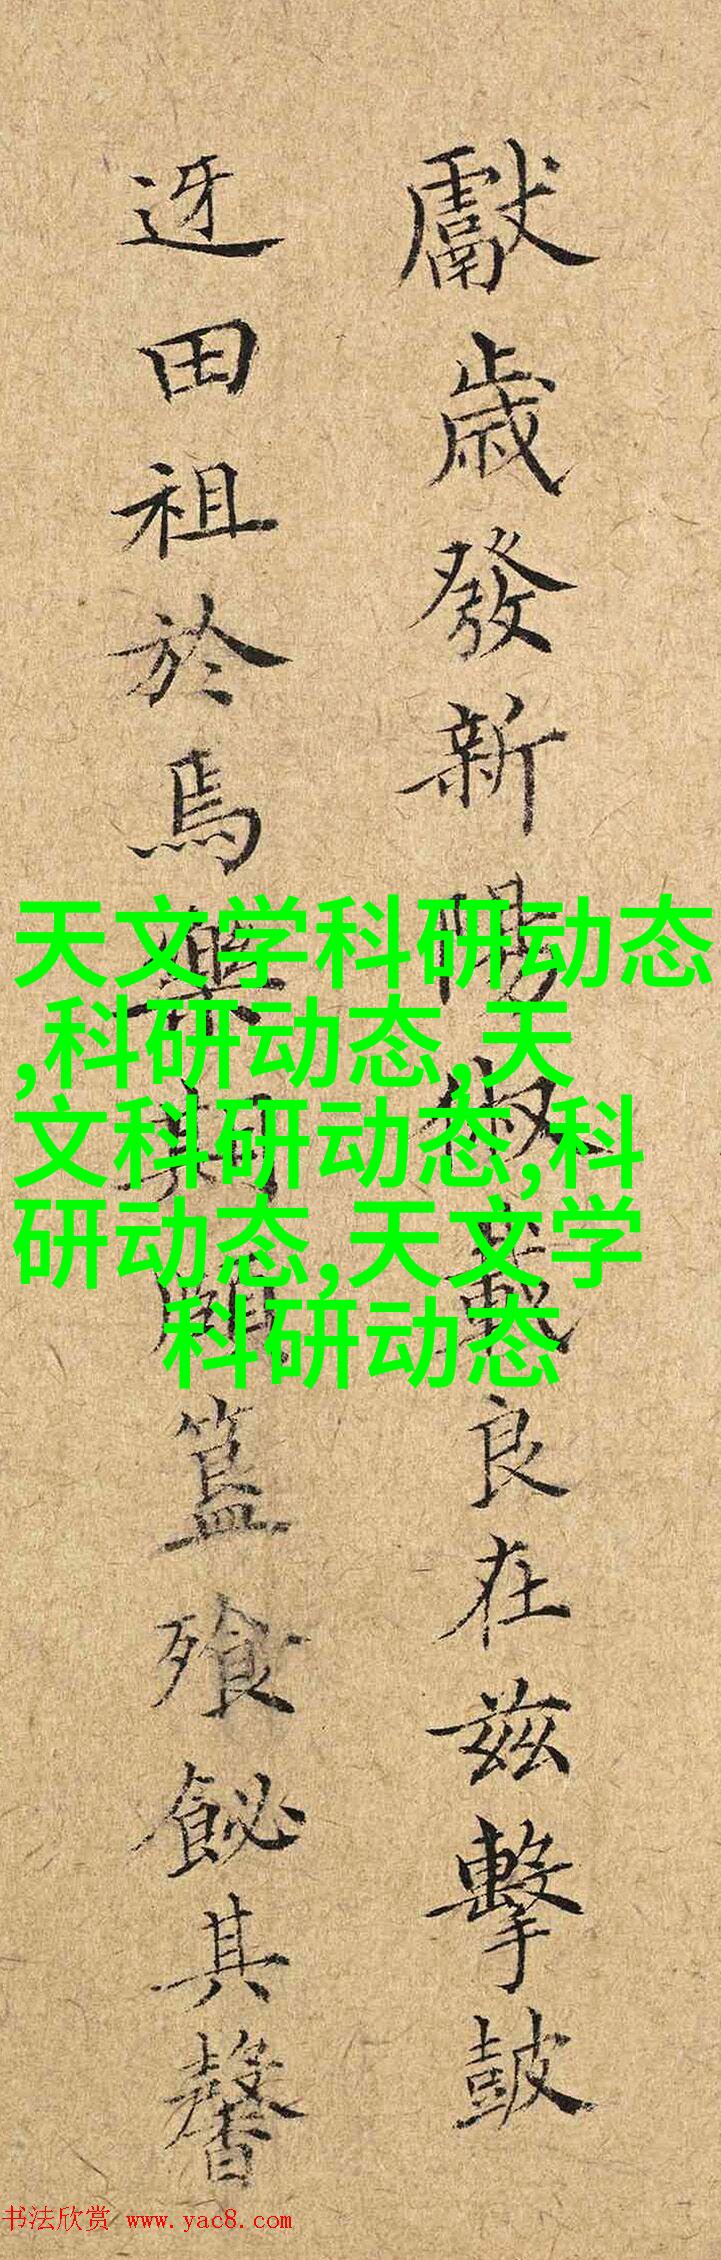 獻歲發新陽俶載良在茲擊皷
迓田祖於焉樂期頤簋飱飶其馨
天文学科研动态
,科研动态,天
文科研动态,科
研动态,天文学
科研动态
书法欣赏 www.yac8.com